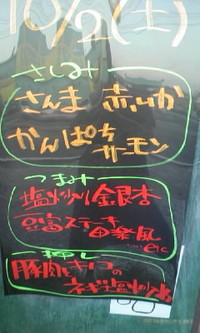 10/2(土)
さしみ
さんま 赤いか
かんぱち
サーモン
つまみ
塩炒り銀杏
豆富ステーキ
和風
etc
押し
豚肉とキノコの
ネギ塩炒め